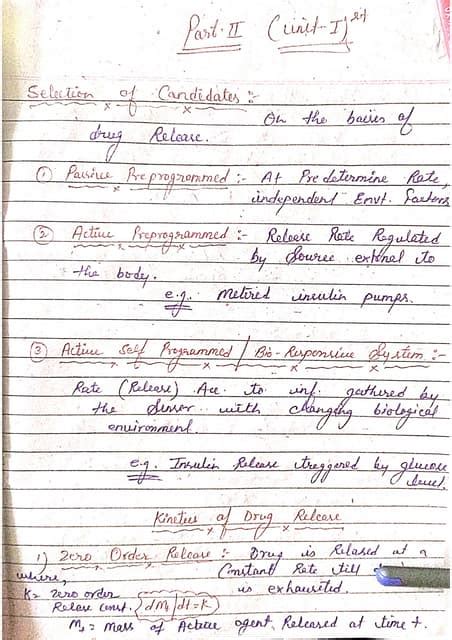 Part-II (Unit-I)
Selection of Candidates :-
On the baises of
drug Release.
① Passive Preprogrammed :- At Predetermine Rate,
independent Envt. factors
② Active Preprogrammed :- Release Rate Regulated
by Source external to
the body.
e.g. Metired insulin pumps.
③ Active Self Programmed / Bio-Responsive System :-
Rate (Release) Acc. to inf. gathered by
the Sensor with changing biological
environment.
e.g. Insulin Release treggered by glucose
level.
Kinetics of Drug Release
1) Zero Order Release :- Drug is Relased at a
where, Constant Rate till
K = Zero order is exhausited.
Relase const. (dMt/dt = K)
Mt = Mass of Active agent Released at time t.